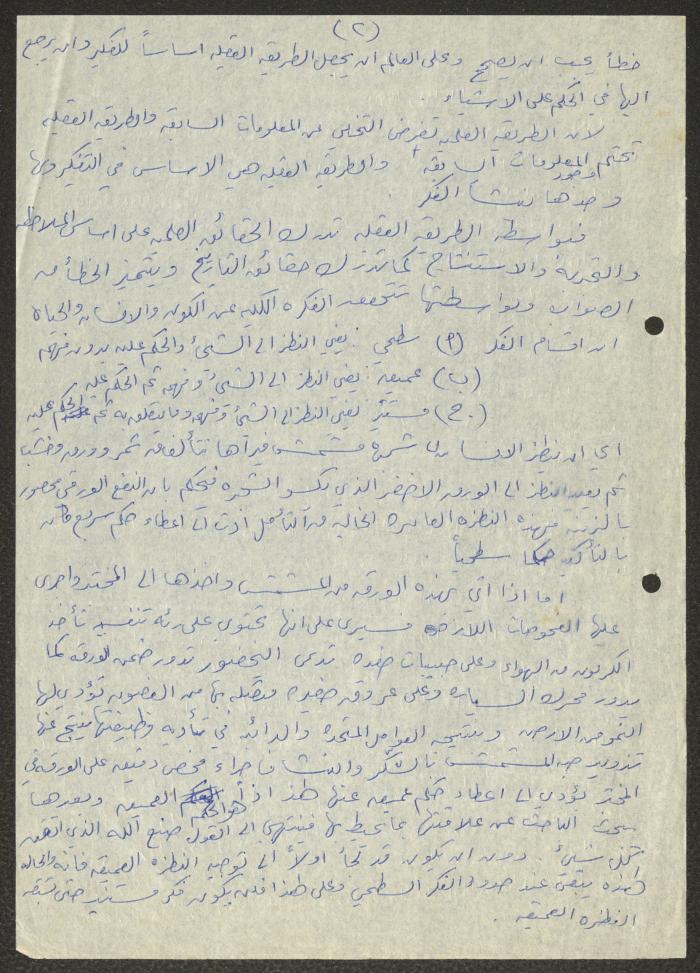 (٢)
خطأ يجب ان يصحح وعلى العالم ان يجعل الطريقه العقليه اساساً للفكر وان يرجع
اليها في الحكم على الاشياء .
لأن الطريقه العلميه تفرض التخلي عن المعلومات السابقه والطريقه العقليه
تحتم وجود المعلومات السابقه والطريقه العقليه هي الاساس في التفكير وبها
وحدها ينشأ الفكر
فبواسطة الطريقه العقليه تدرك الحقائق العلميه على اساس الملاحظه
والتجربة والاستنتاج كما تدرك حقائق التاريخ ويتميز الخطأ من
الصواب وبواسطتها تتحقق الفكره الكليه عن الكون والانسان والحياه
ان اقسام الفكر (أ) سطحي : يعني النظر الى الشئ والحكم عليه بدون فهم
(ب) عميق : يعني النظر الى الشئ وفهمه ثم الحكم عليه
(ج) مستنير يعني النظر الى الشئ وفهمه وما يتعلق به ثم الحكم عليه
اي ان ينظر الانسان الى شجرة مشمش فيراها تتألف من ثمر وورق وخشب
ثم يعيد النظر الى الورق الاخضر الذي يكسو الشجره فيحكم بان النفع الورقي محصور
بالزينه فهذه النظره العابره الخاليه من التأمل ادت الى اعطاء حكم سريع كان
بالتأكيد حكما سطحياً .
اما اذا اتي بهذه الورقه من المشمش واخذها الى المختبر واجرى
عليها الفحوصات اللازمه فسيرى على انها تحتوي على رئه تنفسيه تأخذ
الكربون من الهواء وعلى حبيبات خضره تدعى اليخضور تدور ضمن الورقه كما
يدور محرك السياره وعلى عروق صغيره متصله بها من الغصون تؤدي لها
النمو من الارض ونتيجه العوامل المتحده والدائبه في تأديه وظيفتها ينتج عنها
تزويد حبه المشمش بالسكر والنشا فاجراء فحص دقيق على الورقه في
المختبر يؤدي الى اعطاء حكم عميق عنها هذا اذاً هو الحكم العميق وبعدها
يبحث الباحث عن علاقتها بما يحيط بها فينتهي الى القول صنع الله الذي اتقن
كل شئ . دون ان يكون قد لجأ اولاً الى توجيه النظره العميقه فانه والحاله
هذه يبقى عند حدود الفكر السطحي وعلى هذا فلن يكون فكر مستنير حتى تسبقه
النظره العميقه .